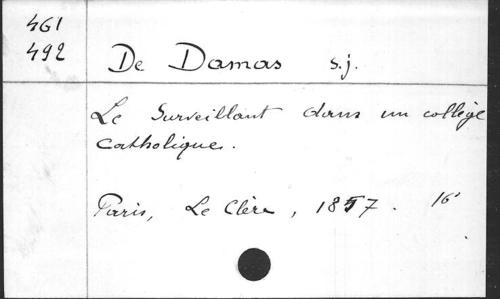 461
492
De Damas s.j.
Le Surveillant dans un collège
Catholique.
Paris, Le Clère, 1857. 16°